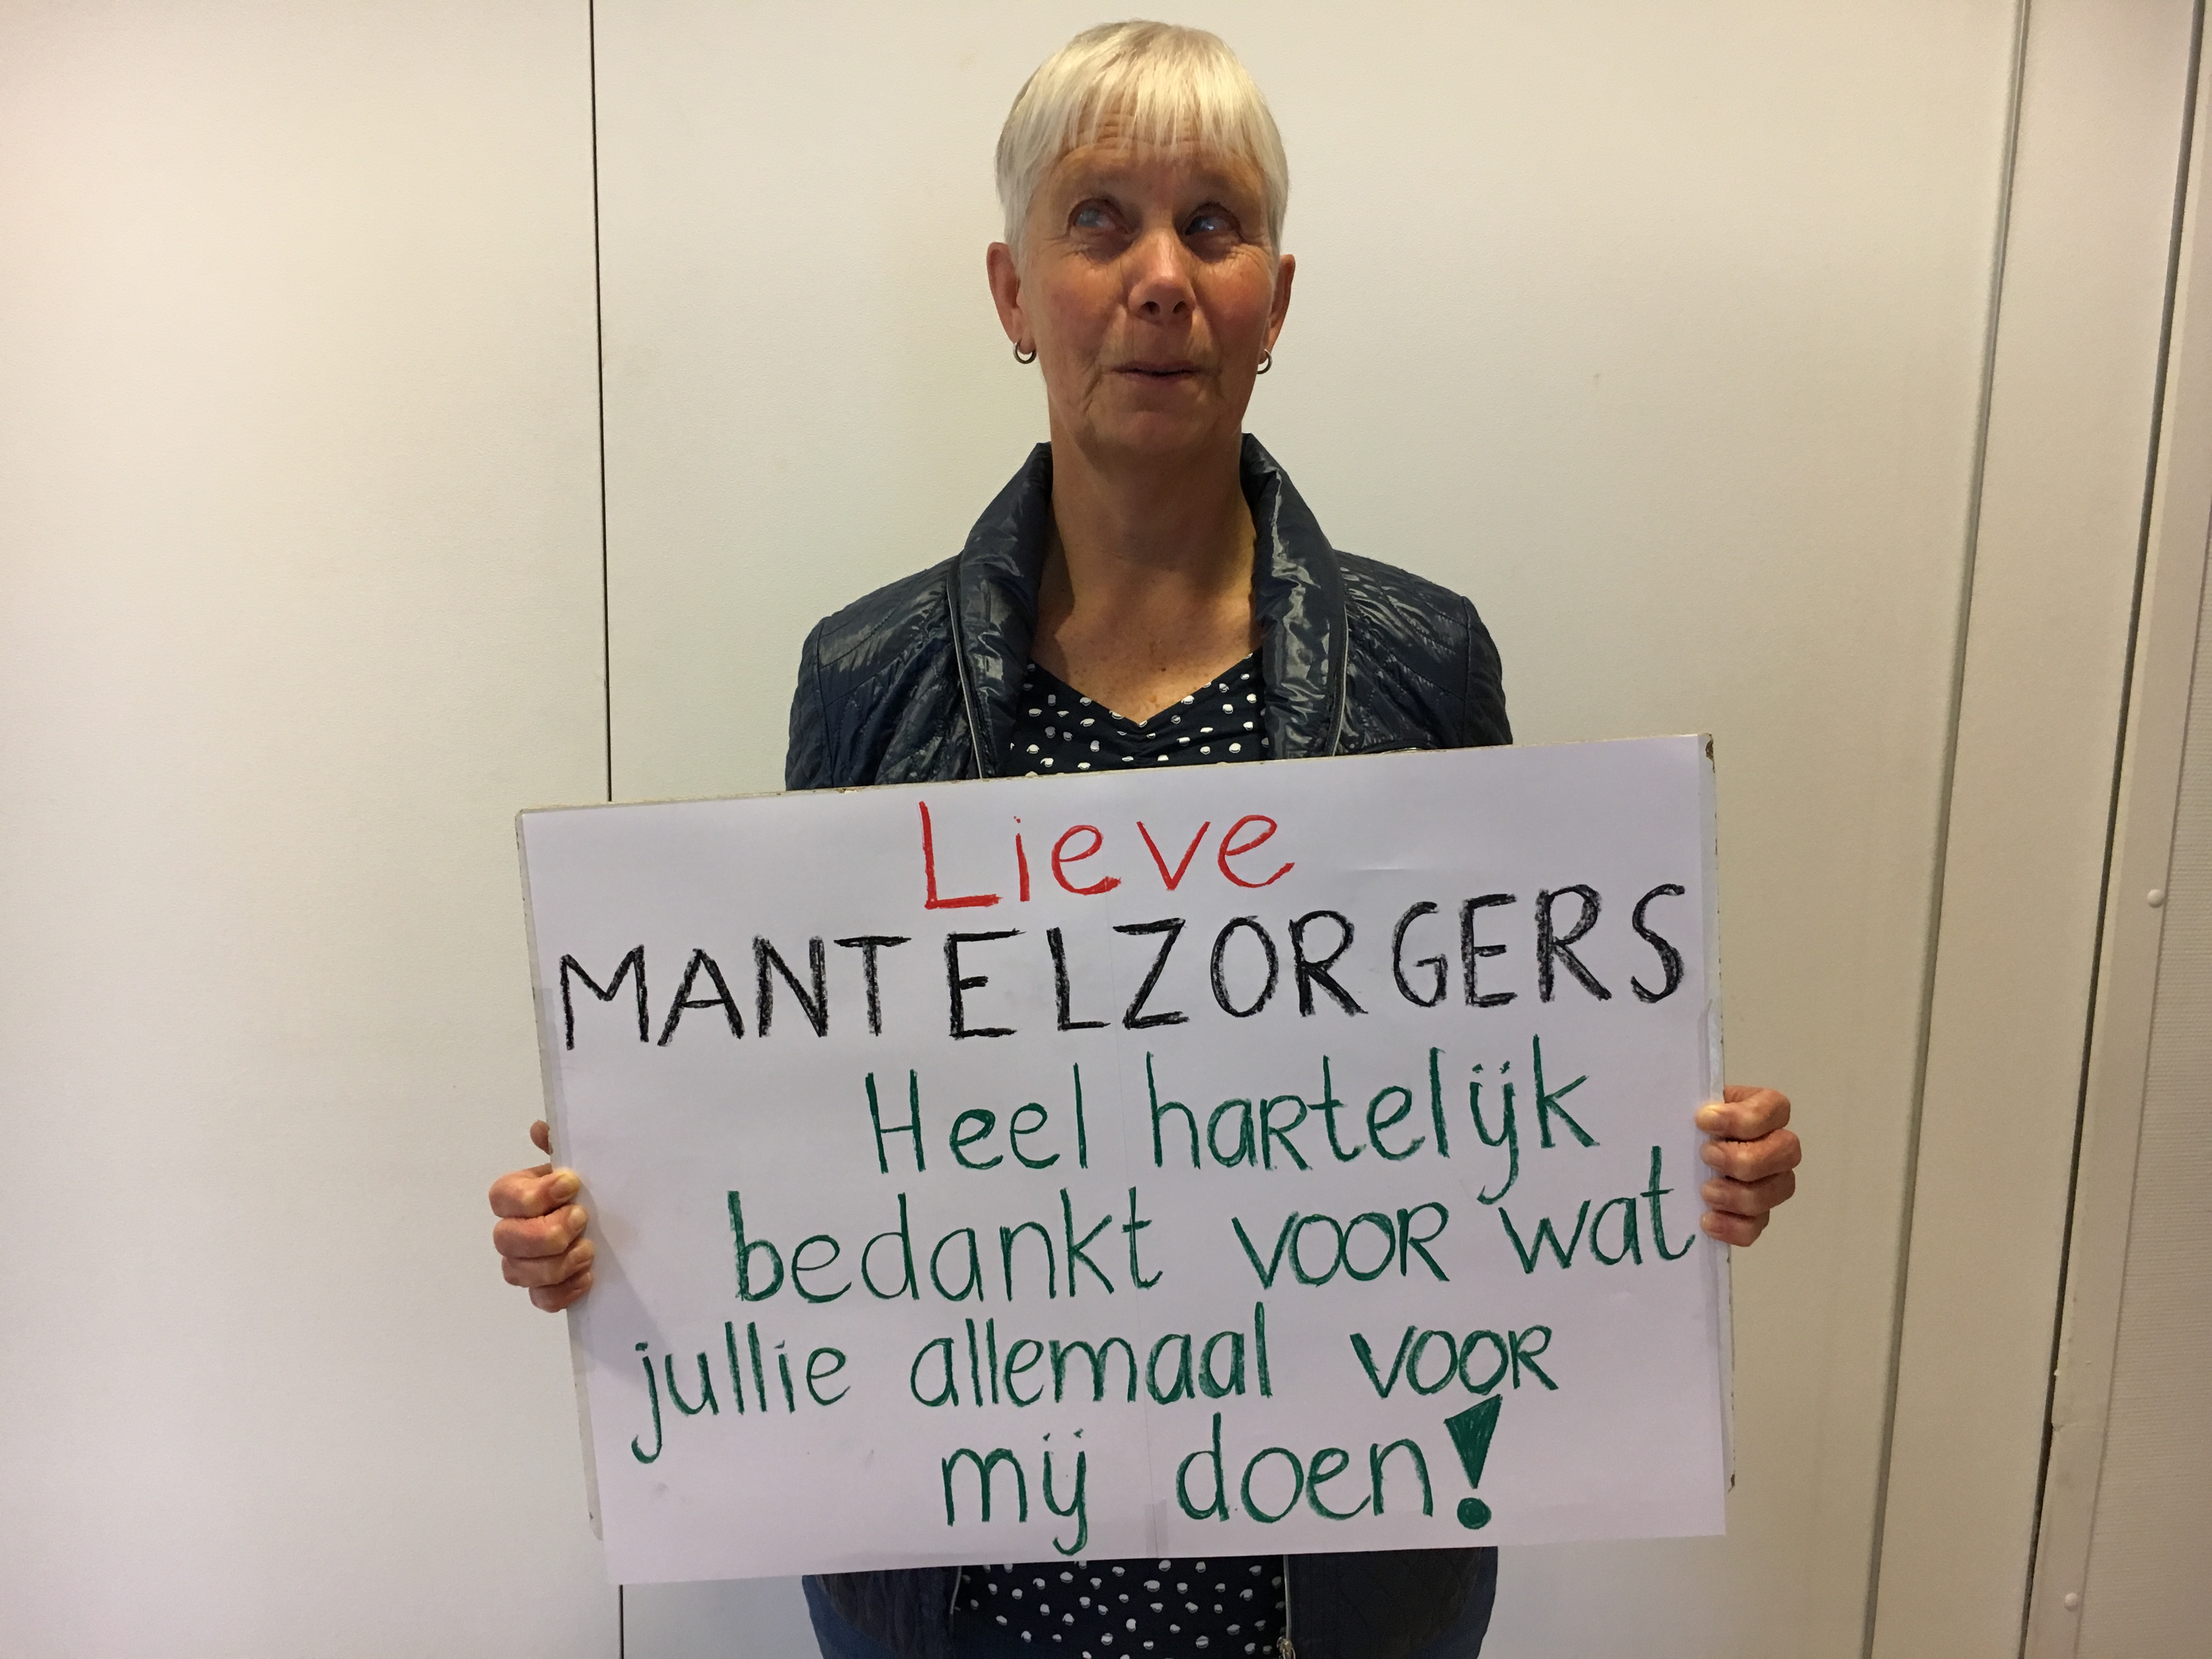 Lieve
MANTELZORGERS
Heel hartelijk
bedankt voor wat
jullie allemaal voor
mij doen!